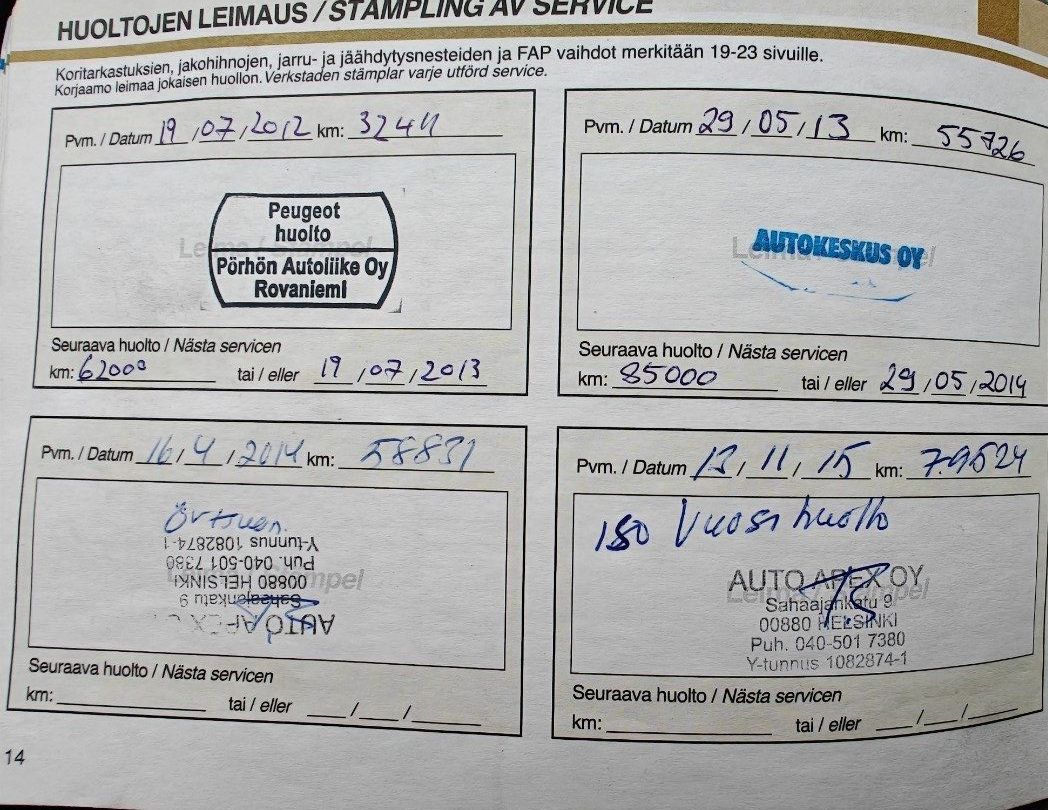 HUOLTOJEN LEIMAUS / STÄMPLING AV SERVICE
Koritarkastuksien, jakohihnojen, jarru- ja jäähdytysnesteiden ja FAP vaihdot merkitään 19-23 sivuille.
Korjaamo leimaa jokaisen huollon. Verkstaden stämplar varje utförd service.
Pvm. / Datum 19 / 07 / 2012 km: 32411
Leima / Stämpel
Peugeot
huolto
Pörhön Autoliike Oy
Rovaniemi
Seuraava huolto / Nästa servicen
km: 62000 tai / eller 19 / 07 / 2013
Pvm. / Datum 29 / 05 / 13 km: 55726
Leima / Stämpel
AUTOKESKUS OY
Seuraava huolto / Nästa servicen
km: 85000 tai / eller 29 / 05 / 2014
Pvm. / Datum 16 / 4 / 2014 km: 58831
Leima / Stämpel
AUTO APEX OY
Sahaajankatu 9
00880 HELSINKI
Puh. 040-501 7380
Y-tunnus 1082874-1
Seuraava huolto / Nästa servicen
km: tai / eller / /
Pvm. / Datum 13 / 11 / 15 km: 79524
iso Vuosihuolto
Leima / Stämpel
AUTO APEX OY
Sahaajankatu 9
00880 HELSINKI
Puh. 040-501 7380
Y-tunnus 1082874-1
Seuraava huolto / Nästa servicen
km: tai / eller / /
14